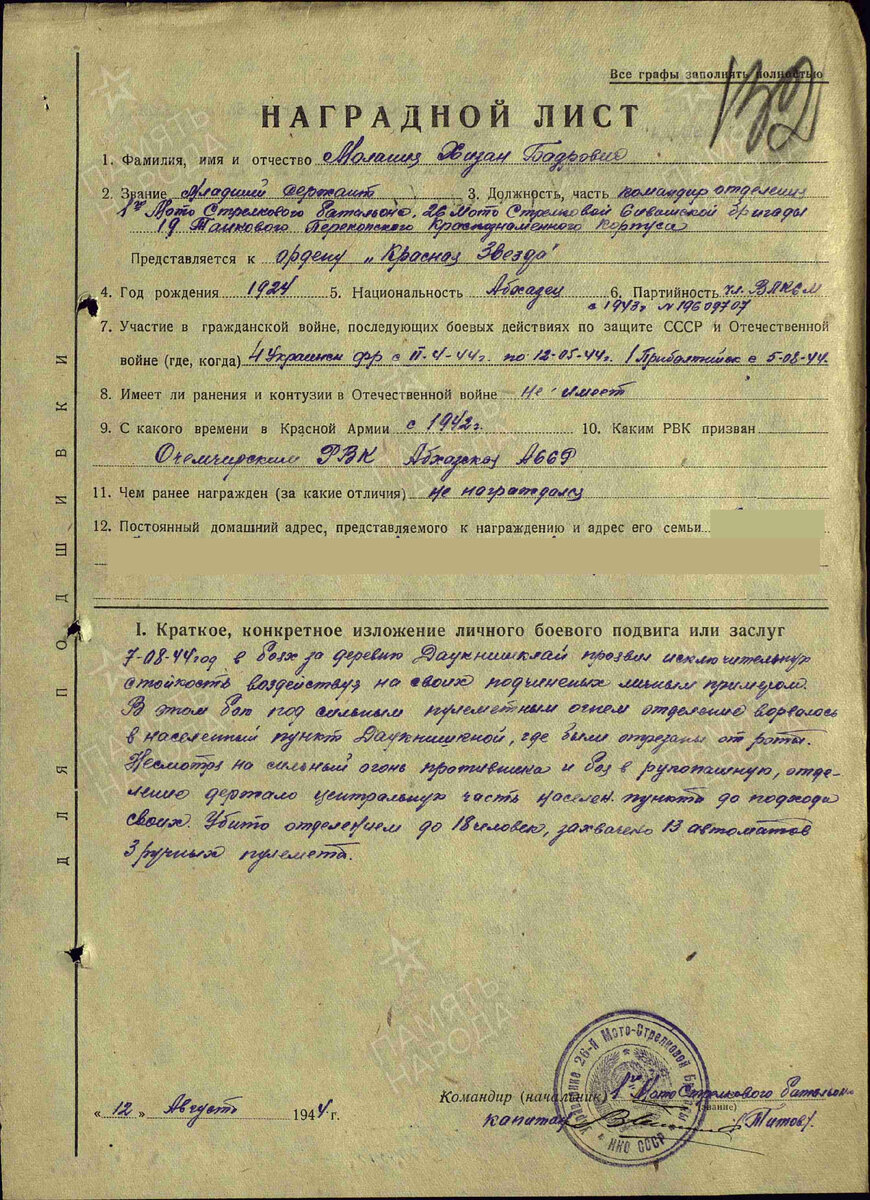 Все графы заполнять полностью
132
НАГРАДНОЙ ЛИСТ
1. Фамилия, имя и отчество Хизан Бадрович
2. Звание Младший сержант 3. Должность, часть командир отделения
1го Мото Стрелкового батальона. 26 Мото Стрелковой Сивашской бригады
19 Танкового Перекопского Краснознаменного корпуса
Представляется к ордену „Красная Звезда"
4. Год рождения 1924 5. Национальность Абхазец 6. Партийность чл. ВЛКСМ
с 1943г №19609707
7. Участие в гражданской войне, последующих боевых действиях по защите СССР и Отечественной
войне (где, когда) 4 Украинск фр с 11-4-44г. по 12-05-44г. 1 Прибалтийск с 5-08-44.
8. Имеет ли ранения и контузии в Отечественной войне не имеет
9. С какого времени в Красной Армии с 1942г. 10. Каким РВК призван
Очемчирским РВК Абхазская АССР
11. Чем ранее награжден (за какие отличия) не награждался
12. Постоянный домашний адрес, представляемого к награждению и адрес его семьи
I. Краткое, конкретное изложение личного боевого подвига или заслуг
7-08-44 год в боях за деревню Даукнишклай проявил исключительную
стойкость воздействуя на своих подчиненых личным примером.
В этом бою под сильным пулеметным огнем отделение ворвалось
в населенный пункт Даукнишкной, где были отрезаны от роты.
Несмотря на сильный огонь противника и бой в рукопашную, отде-
ление держало центральную часть населен. пункта до подхода
своих. Убито отделением до 18 человек, захвачено 13 автоматов
3 ручных пулемета.
Командир (начальник) 1го Мото Стрелкового батальона
(звание)
капитан (Титов).
„12" Август 1944 г.
26-й Мото-Стрелковой
НКО СССР
ДЛЯ ПОДШИВКИ
ПАМЯТЬ НАРОДА